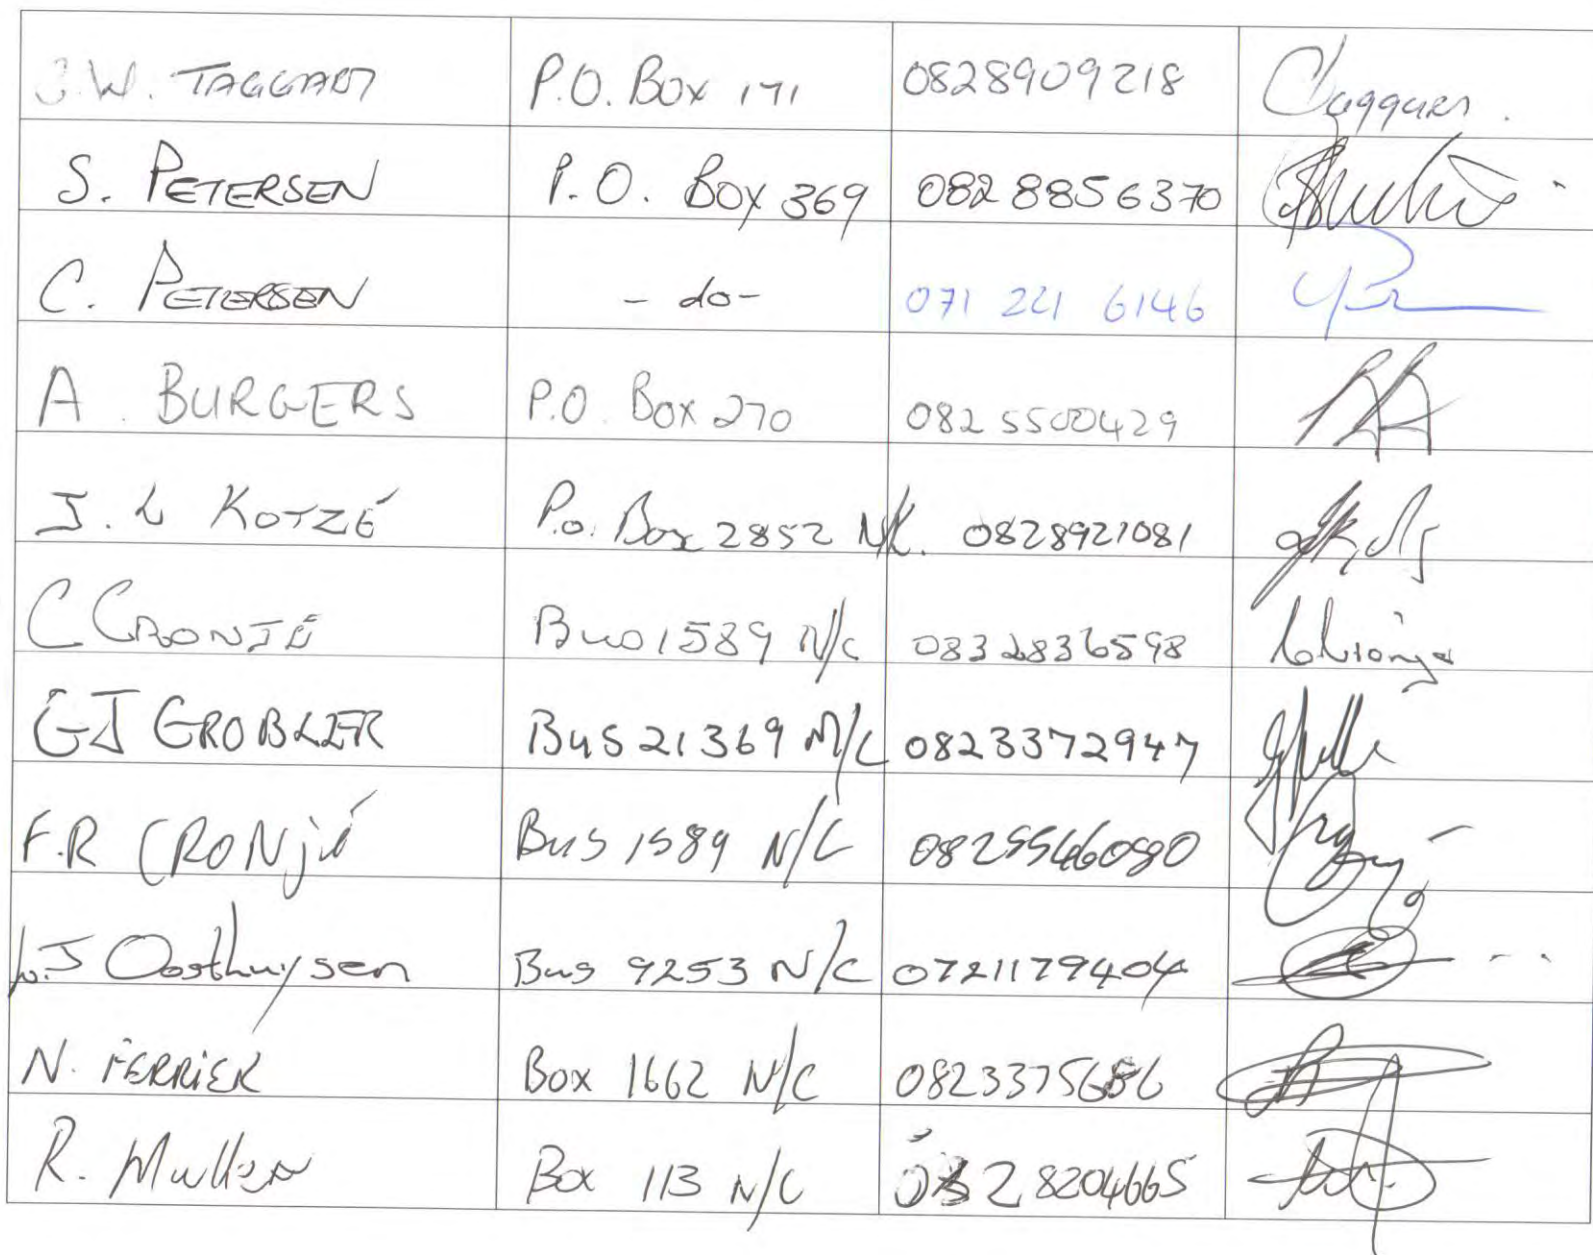 C.W. TAGGART P.O. Box 171 0828909218 CTaggart.
S. PETERSEN P.O. Box 369 0828856370
C. PETERSEN - do - 071 221 6146
A. BURGERS P.O. Box 270 0825500429
J. L KOTZÉ P.o. Box 2852 N/C. 0828921081
C CRONJÉ Bus 1589 N/C 0832836598 CCronje
GJ GROBLER Bus 21369 N/C 0823372947
F.R CRONjé Bus 1589 N/C
J Oosthuysen Bus 9253 N/C 0721179404
N. FERRIER Box 1662 N/C
R. Mullen Box 113 N/C 0828204665